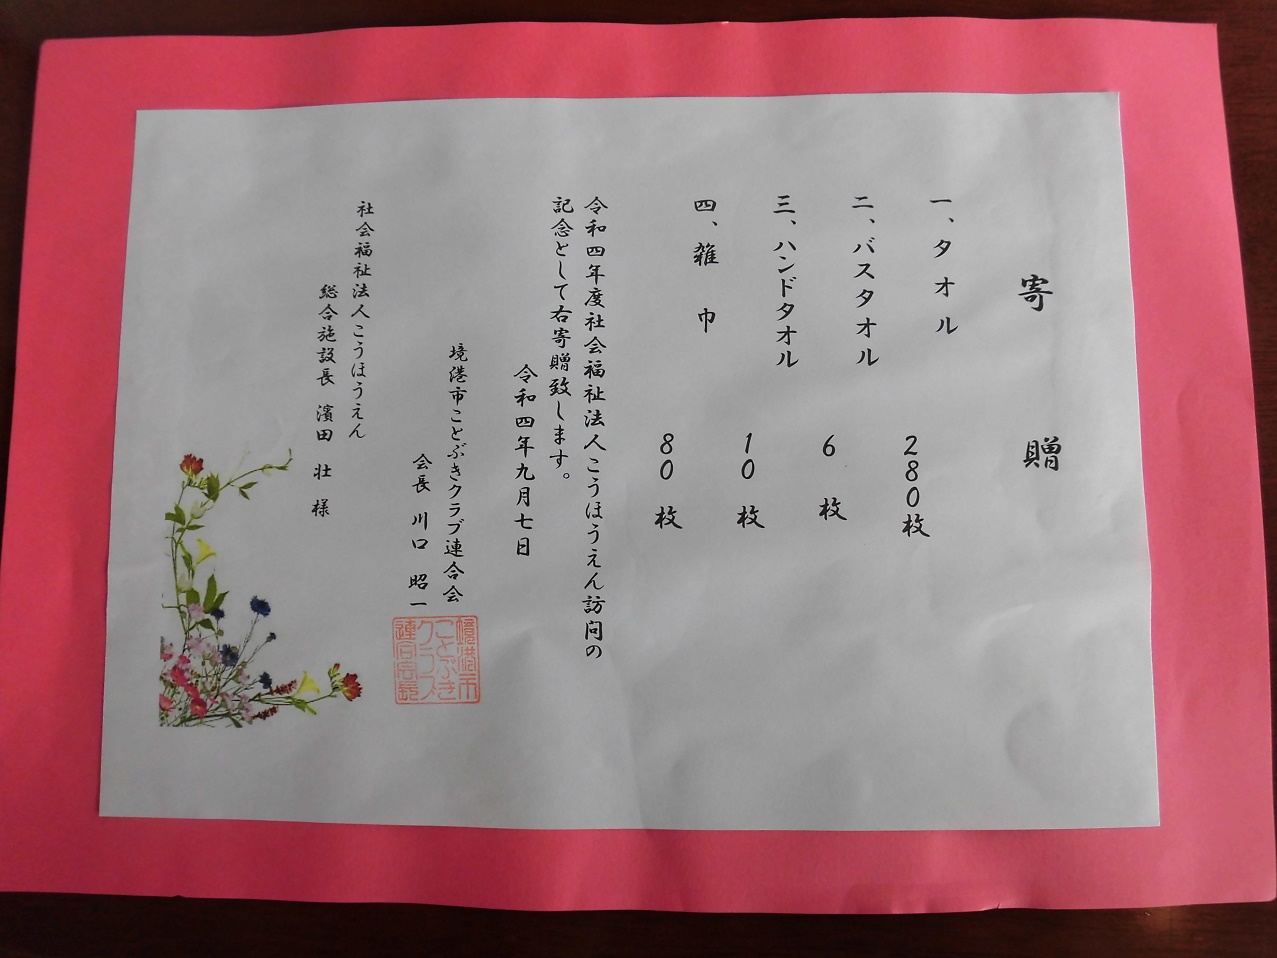 寄 贈
一、タオル 280枚
二、バスタオル 6枚
三、ハンドタオル 10枚
四、雑巾 80枚
令和四年度社会福祉法人こうほうえん訪問の
記念として右寄贈致します。
令和四年九月七日
境港市ことぶきクラブ連合会
会長 川口 昭一
境港市
ことぶき
クラブ
連合会長
社会福祉法人こうほうえん
総合施設長 濱田 壮 様